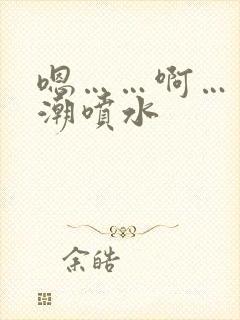 嗯……啊…
潮噴水
余皓